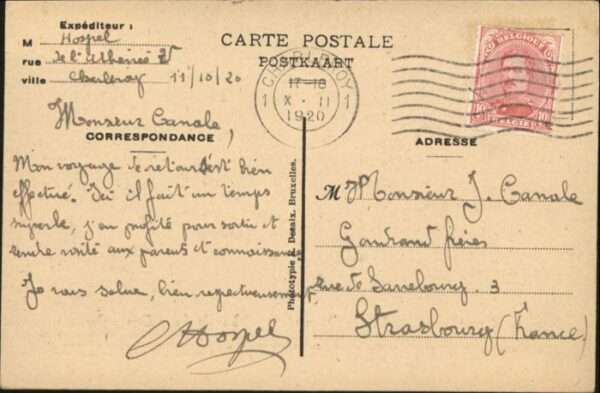 Expéditeur :
M Hospel
rue de l'Athénée
ville Charleroy 11/10/20
CARTE POSTALE
POSTKAART
CHARLEROY
17-18
1 X - 11 1
1920
BELGIQUE
10 10
BELGIË
Monsieur Canale,
CORRESPONDANCE
ADRESSE
Mon voyage de retour s'est bien
effectué. Ici il fait un temps
superbe, j'en profite pour sortir et
rendre visite aux parents et connaissances
Je vous salue, bien respectueusement
Hospel
Phototypie R. Desaix, Bruxelles.
M Monsieur J. Canale
Gondrand frères
rue de Sarrebourg. 3
Strasbourg (France)